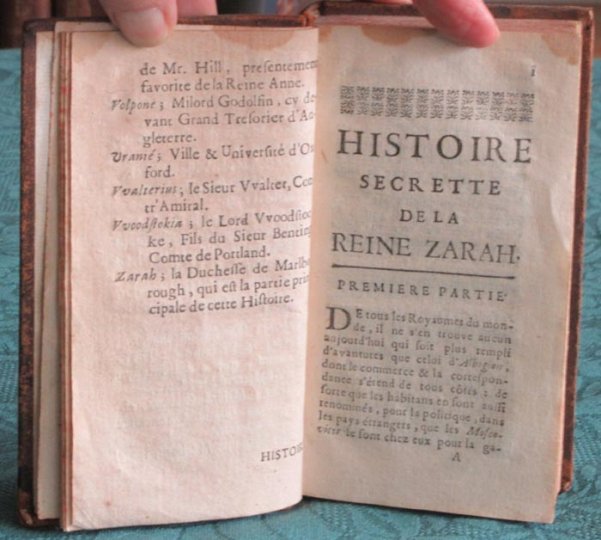 de Mr. Hill, presentement
favorite de la Reine Anne.
Volpone; Milord Godolfin, cy de-
vant Grand Tresorier d'An-
gleterre.
Uranié; Ville & Université d'Ox
ford.
Vvalterius; le Sieur Vvalter, Con
tr'Amiral.
Vvoodstokia; le Lord Vvoodstoc
ke, Fils du Sieur Benting
Comte de Portland.
Zarah; la Duchesse de Marlb
rough, qui est la partie prin
cipale de cette Histoire.
HISTOI
1
HISTOIRE
SECRETTE
DE LA
REINE ZARAH.
PREMIERE PARTIE.
DE tous les Royaumes du mon-
de, il ne s'en trouve aucun
aujourd'hui qui soit plus rempli
d'avantures que celui d'Albigion,
dont le commerce & la correspon-
dance s'étend de tous côtés; de
sorte que les habitans en sont aussi
renommés, pour la politique, dans
les pays étrangers, que les Mosco-
vites le sont chez eux pour la ga-
A